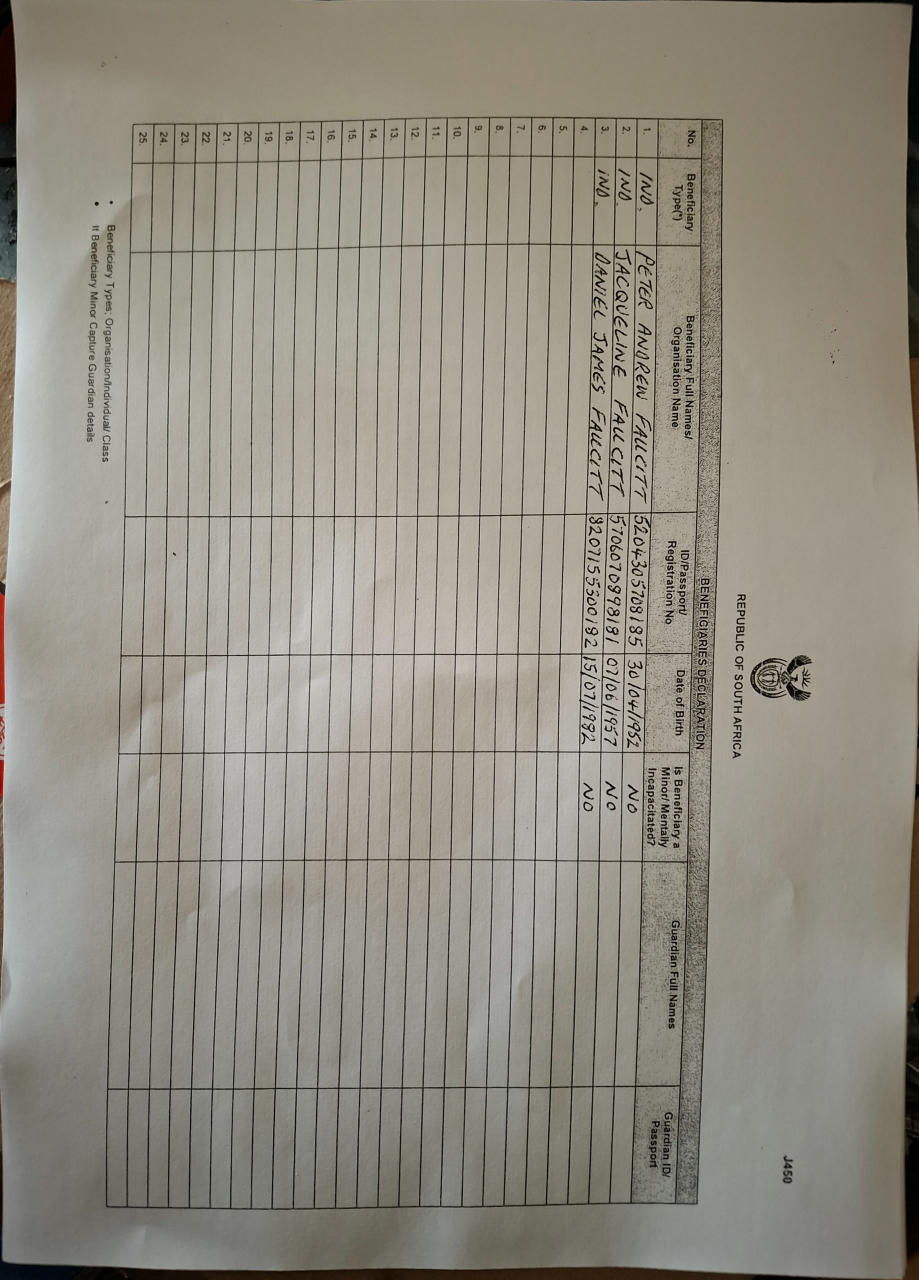 J450
REPUBLIC OF SOUTH AFRICA
BENEFICIARIES DECLARATION
No. Beneficiary Type(*) Beneficiary Full Names/ Organisation Name ID/Passport/ Registration No Date of Birth Is Beneficiary a Minor/ Mentally Incapacitated? Guardian Full Names Guardian ID/ Passport
1. IND. PETER ANDREW FAUCITT 5204305708185 30/04/1952 NO
2. IND. JACQUELINE FAUCITT 5706070898181 07/06/1957 NO
3. IND. DANIEL JAMES FAUCITT 8207155300182 15/07/1982 NO
4.
5.
6.
7.
8.
9.
10.
11.
12.
13.
14.
15.
16.
17.
18.
19.
20.
21.
22.
23.
24.
25.
• Beneficiary Types: Organisation/Individual/ Class
• If Beneficiary Minor Capture Guardian details